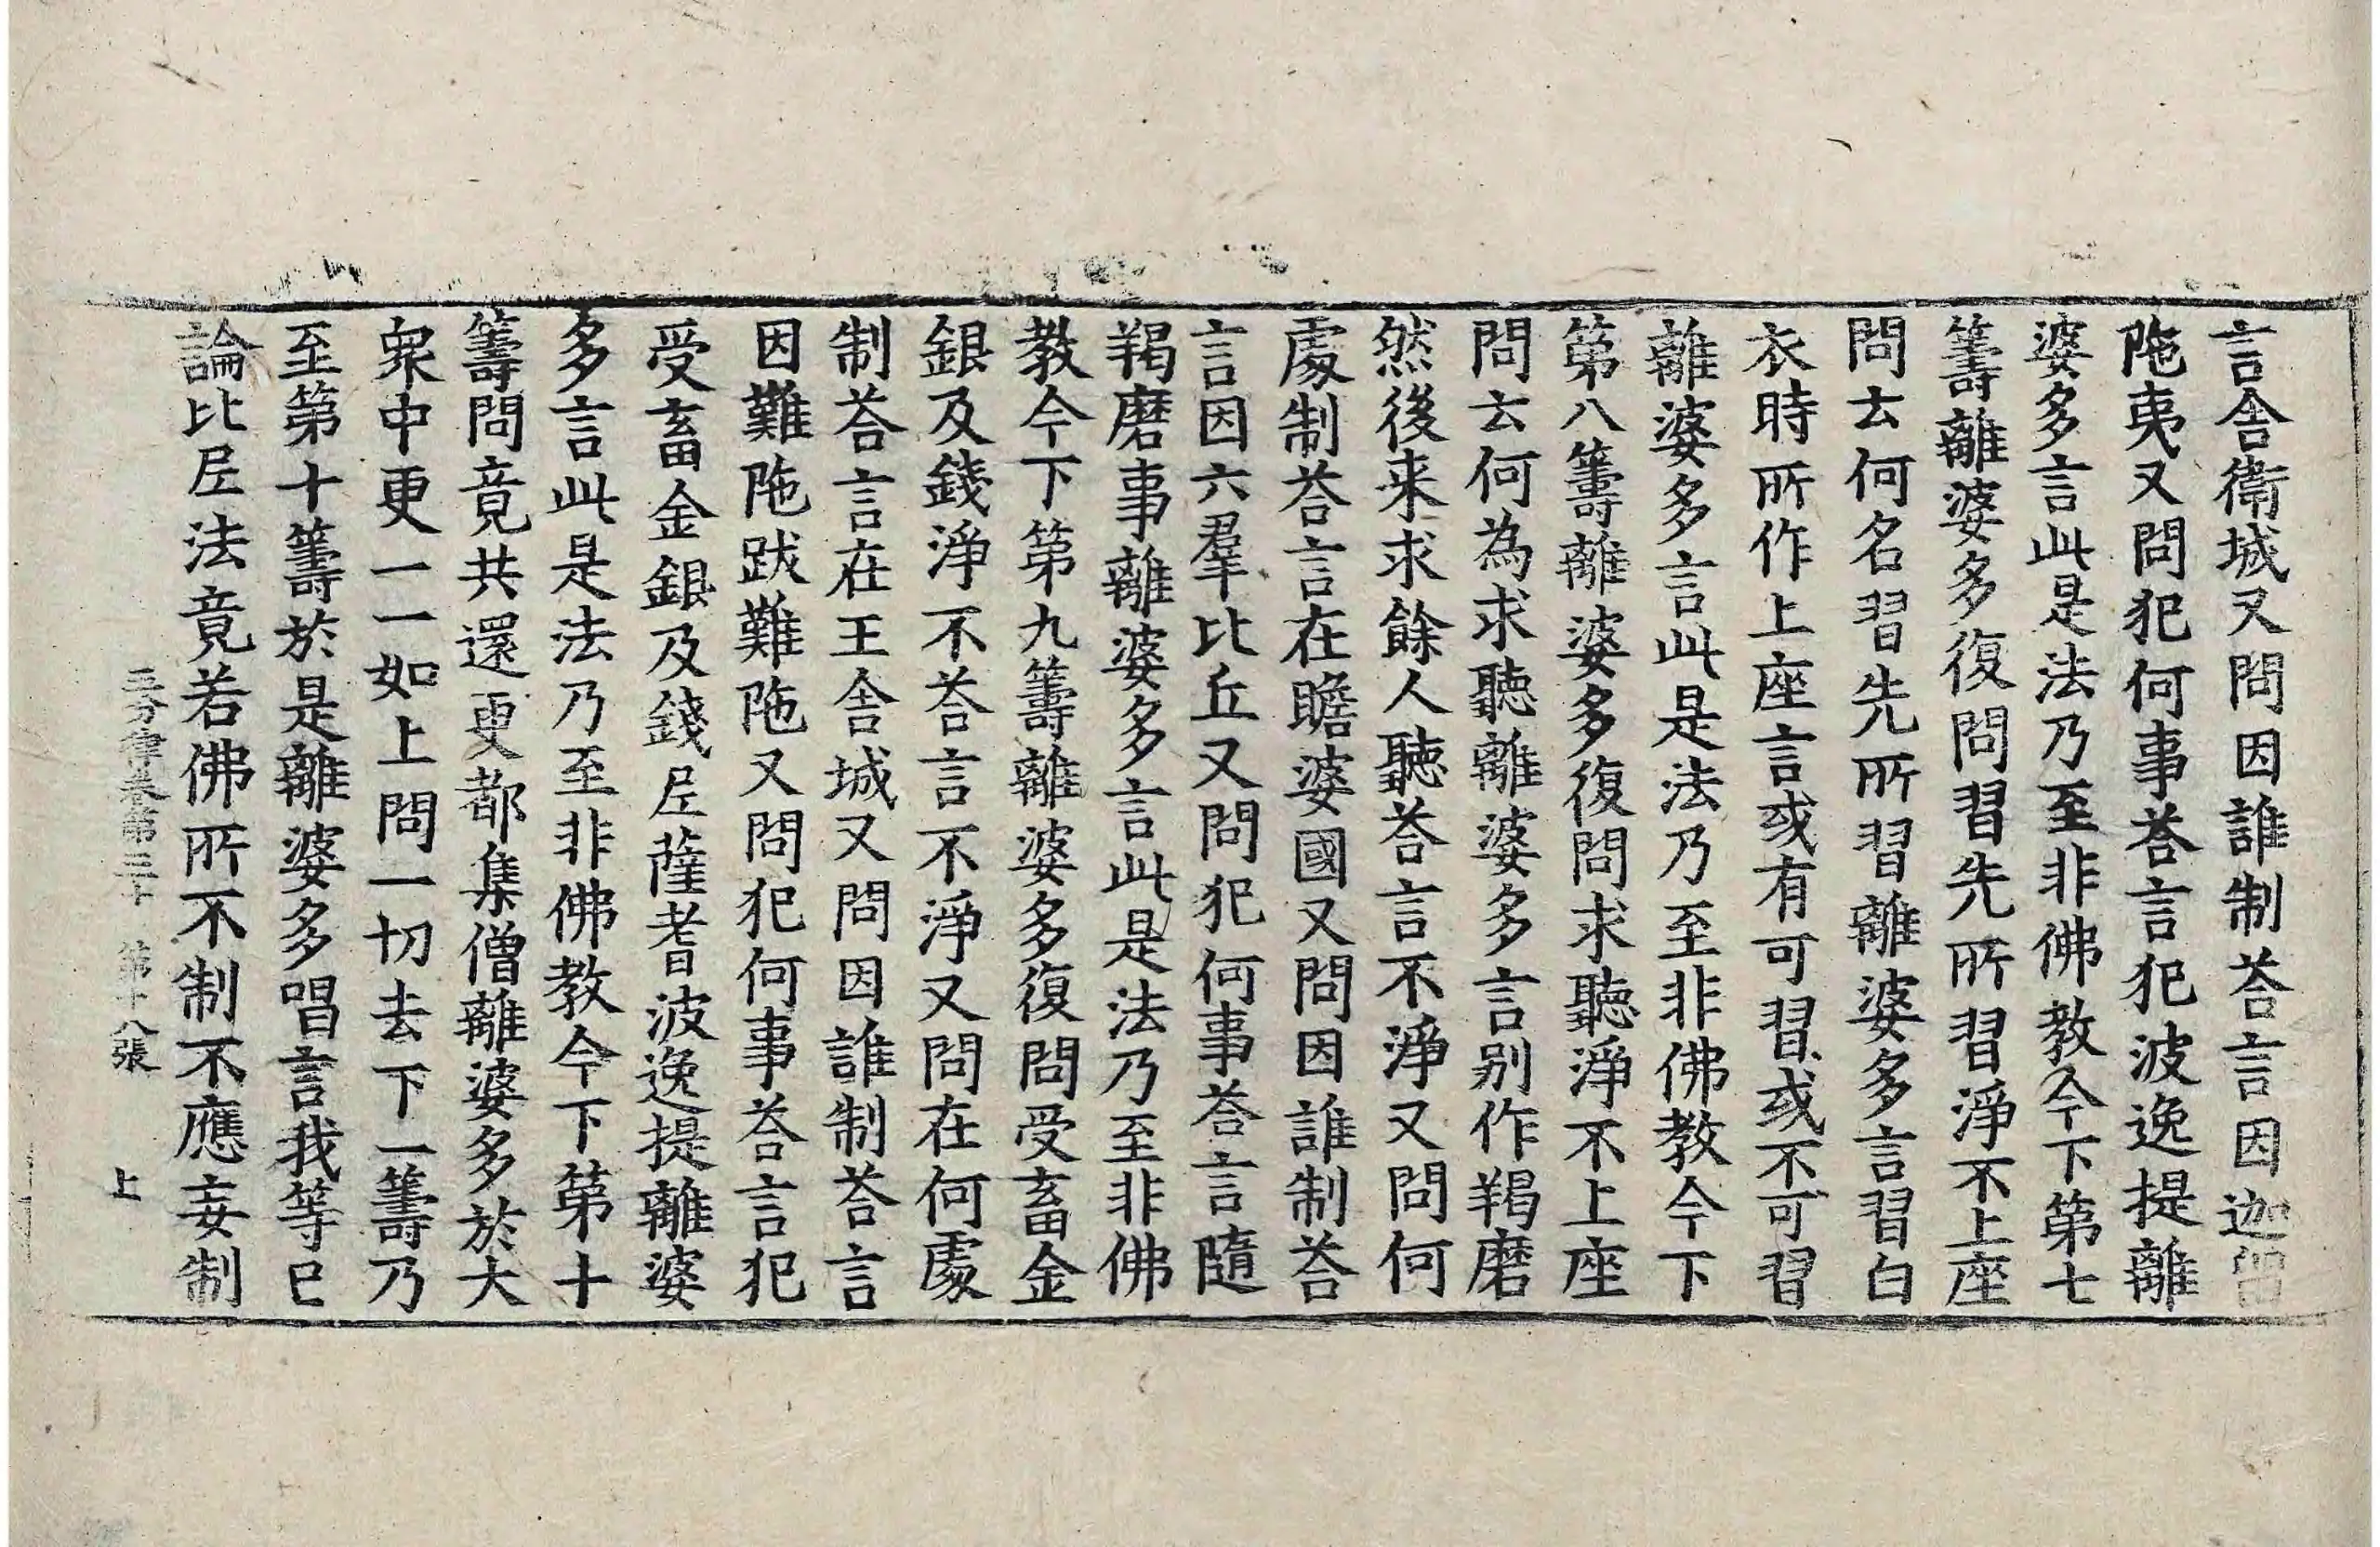 言舍衛城又問因誰制荅言因迦留
陁夷又問犯何事荅言犯波逸提離
婆多言此是法乃至非佛教今下第七
籌離婆多復問習先所習淨不上座
問去何名習先所習離婆多言習白
衣時所作上座言或有可習或不可習
離婆多言此是法乃至非佛教今下
第八籌離婆多復問求聽淨不上座
問去何為求聽離婆多言別作羯磨
然後来求餘人聽荅言不淨又問何
處制荅言在瞻婆國又問因誰制荅
言因六羣比丘又問犯何事荅言隨
羯磨事離婆多言此是法乃至非佛
教今下第九籌離婆多復問受畜金
銀及錢淨不荅言不淨又問在何處
制荅言在王舍城又問因誰制荅言
因難陁跋難陁又問犯何事荅言犯
受畜金銀及錢尼薩耆波逸提離婆
多言此是法乃至非佛教今下第十
籌問竟共還更都集僧離婆多於大
衆中更一一如上問一切去下一籌乃
至第十籌於是離婆多唱言我等已
論比尼法竟若佛所不制不應妄制
五分律卷第三十 第十八張 上